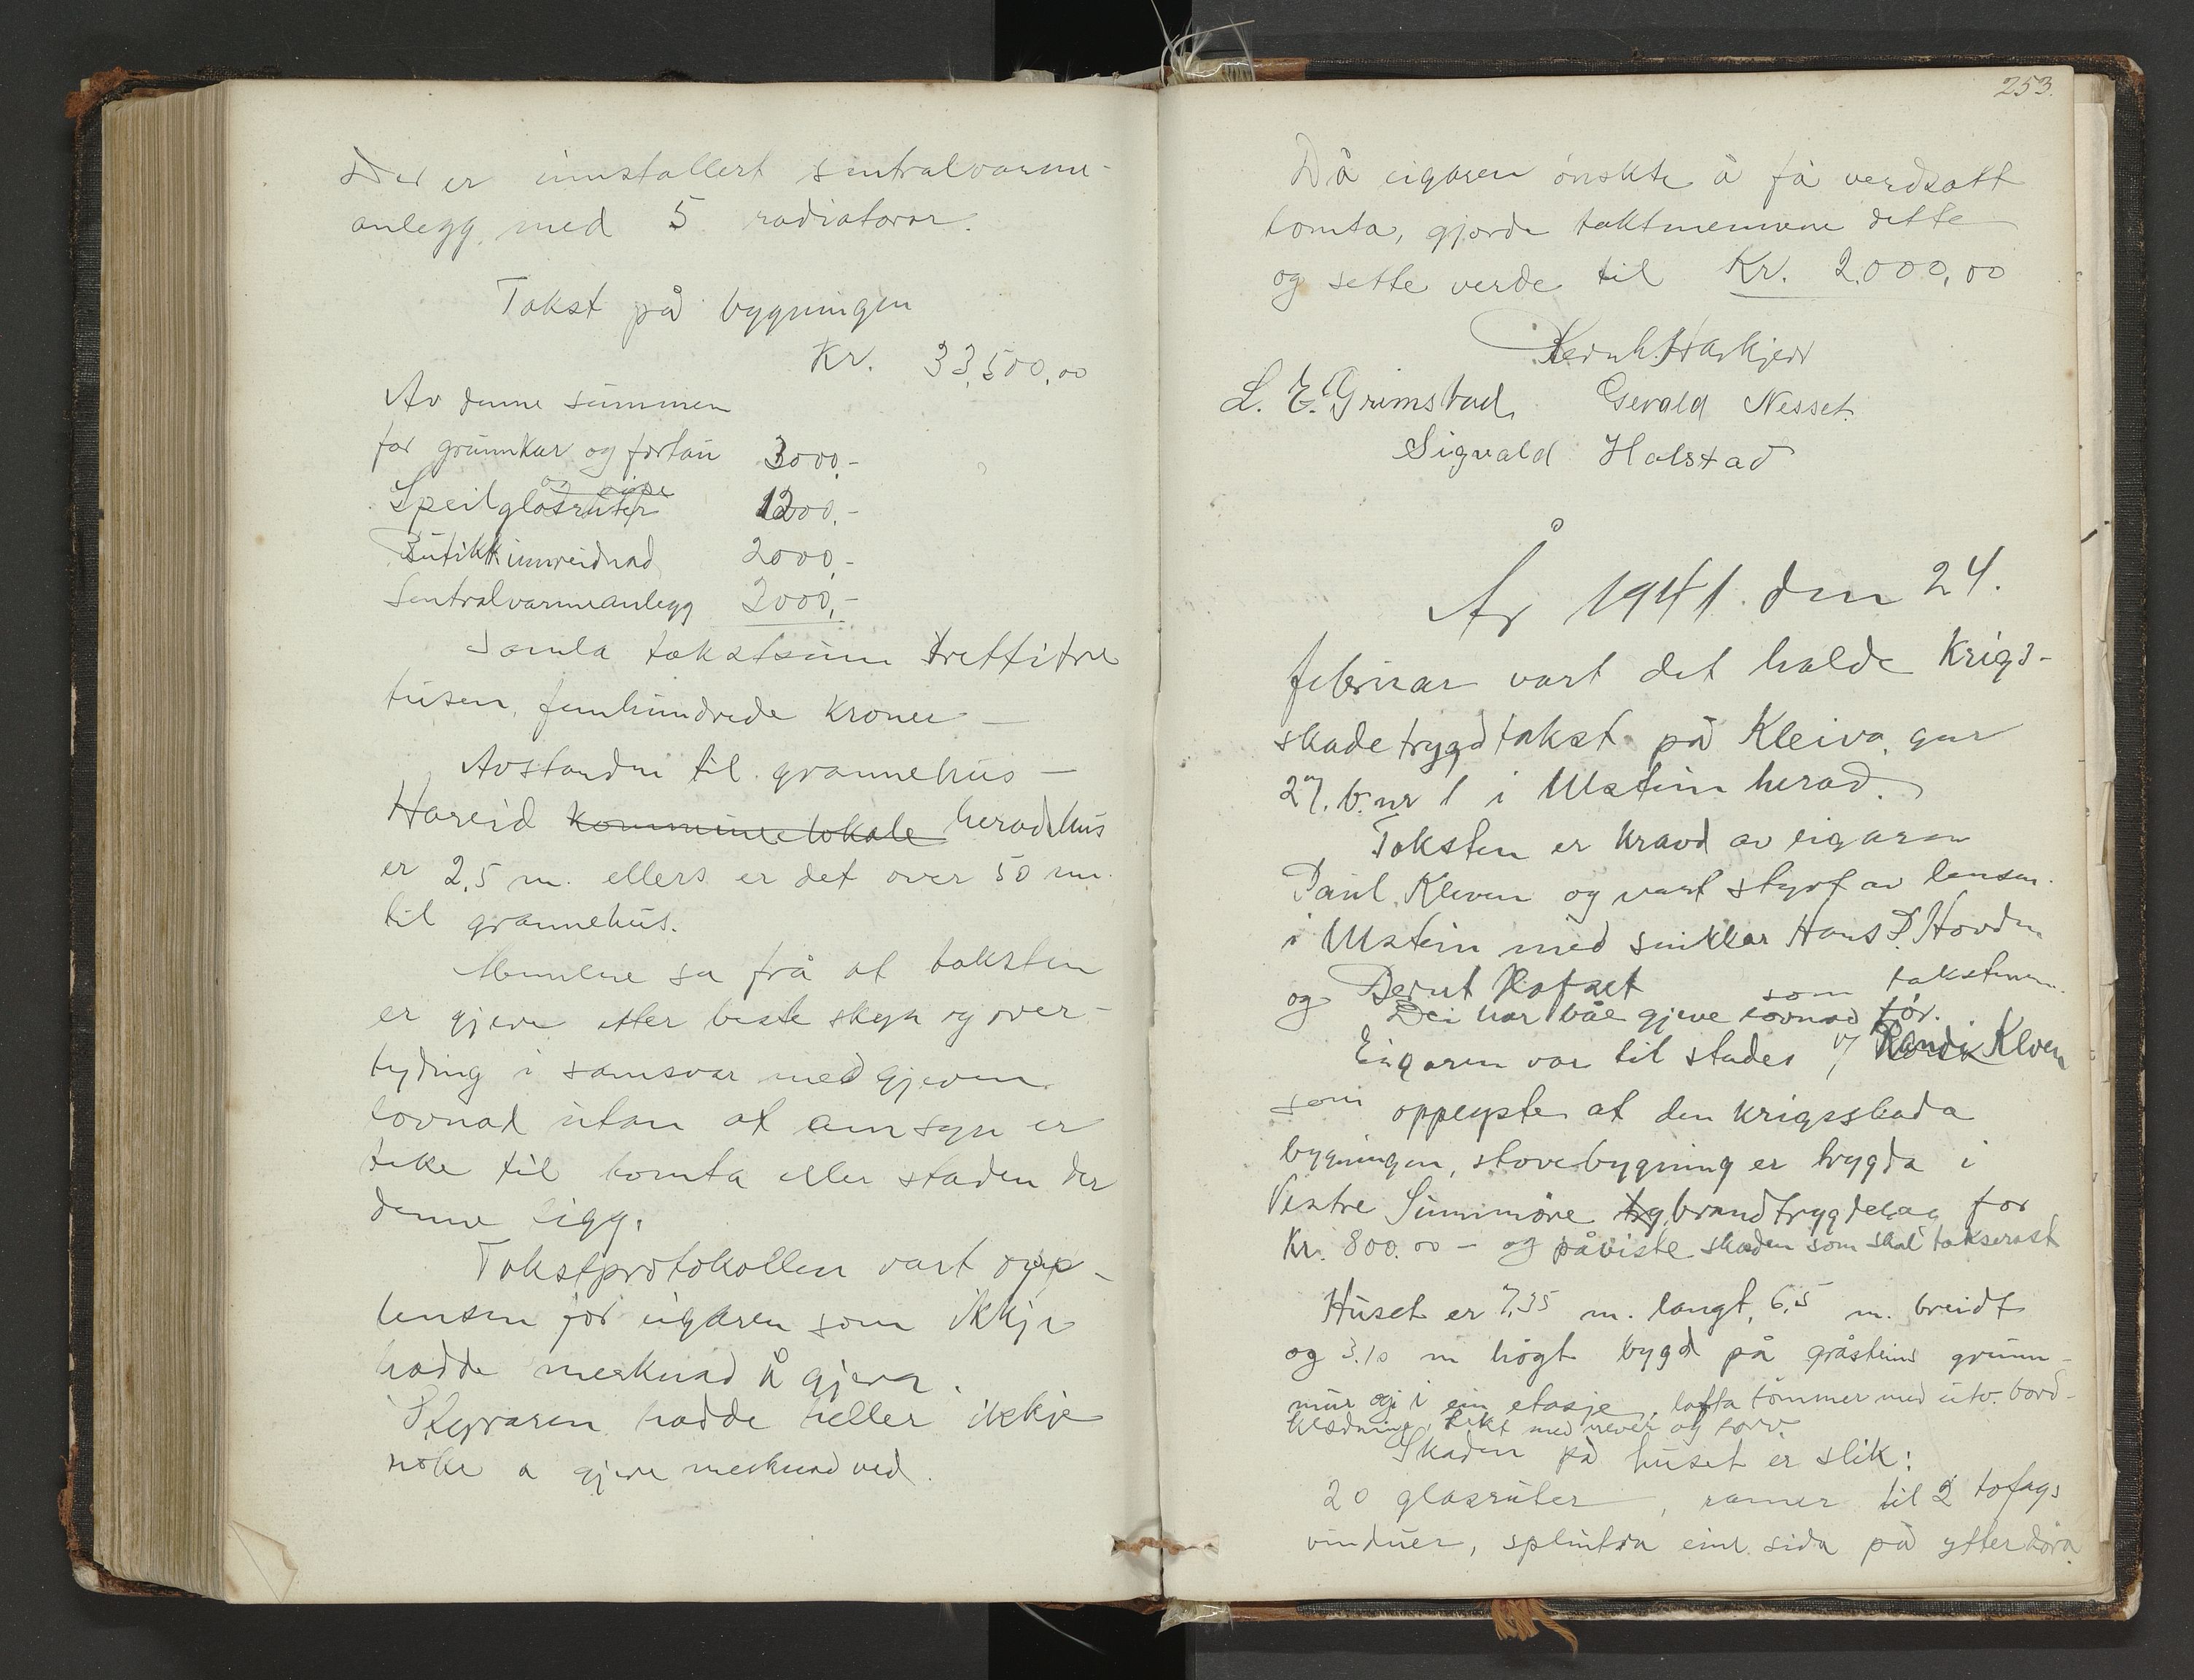 Det er innstallert sentralvarme-
anlegg med 5 radiatorar.
Takst på bygningen
Kr. 33,500,00
Av denne summen
for grunnkar og fortau 3000,-
Speilglasruter 1200,-
Butikkinnreidnad 2000,-
Sentralvarmeanlegg 2000,-
Samla takstsum trettitre
tusen, femhundrede kroner —
Avstanden til grannehus —
Hareid kommunelokale heradshus
er 2,5 m. ellers er det over 50 m.
til grannehus.
Mennene sa frå at taksten
er gjeve etter beste skyn og over-
tyding i samsvar med gjeven
lovnad utan at omsyn er
teke til tomta eller staden der
denne ligg.
Takstprotokollen vart opp-
lensen for eigaren som ikkje
hadde merknad å gjera.
Styraren hadde heller ikkje
noke a gjere merknad ved.
253.
Då eigaren ønskte å få verdsatt
tomta, gjorde taktmennene dette
og sette verde til Kr. 2.000,00
L. E. Grimstad Gerald Nesset.
Sigvald Halstad
År 1941 den 24.
februar vart det halde krigs-
skadetrygdtakst på Kleiva, gnr
27. b.nr 1 i Ulstein herad.
Taksten er kravd av eigaren
Paul Kleven og vart styrt av lensm.
i Ulstein med snikkar Hans P. Hovden
og Bernt Rafset som takstmenn.
Dei har båe gjeve lovnad før.
Eigaren var til stades v/ Randi Kleven
som opplyste at den krigsskada
bygningen, stovebygning er trygda i
Vestre Sunnmøre try brandtrygdelag for
Kr. 800.00 — og påviste skaden som skal takserast
Huset er 7,35 m. langt, 6,5 m. breidt
og 3.10 m høgt bygd på gråsteins grunn-
mur og i ein etasje, lafta tømmer med utv. bord-
klædning, tekt med never og torv.
Skaden på huset er slik:
20 glasruter, ramer til 2 tofags
vinduer, splintra eine sida på ytterdøra